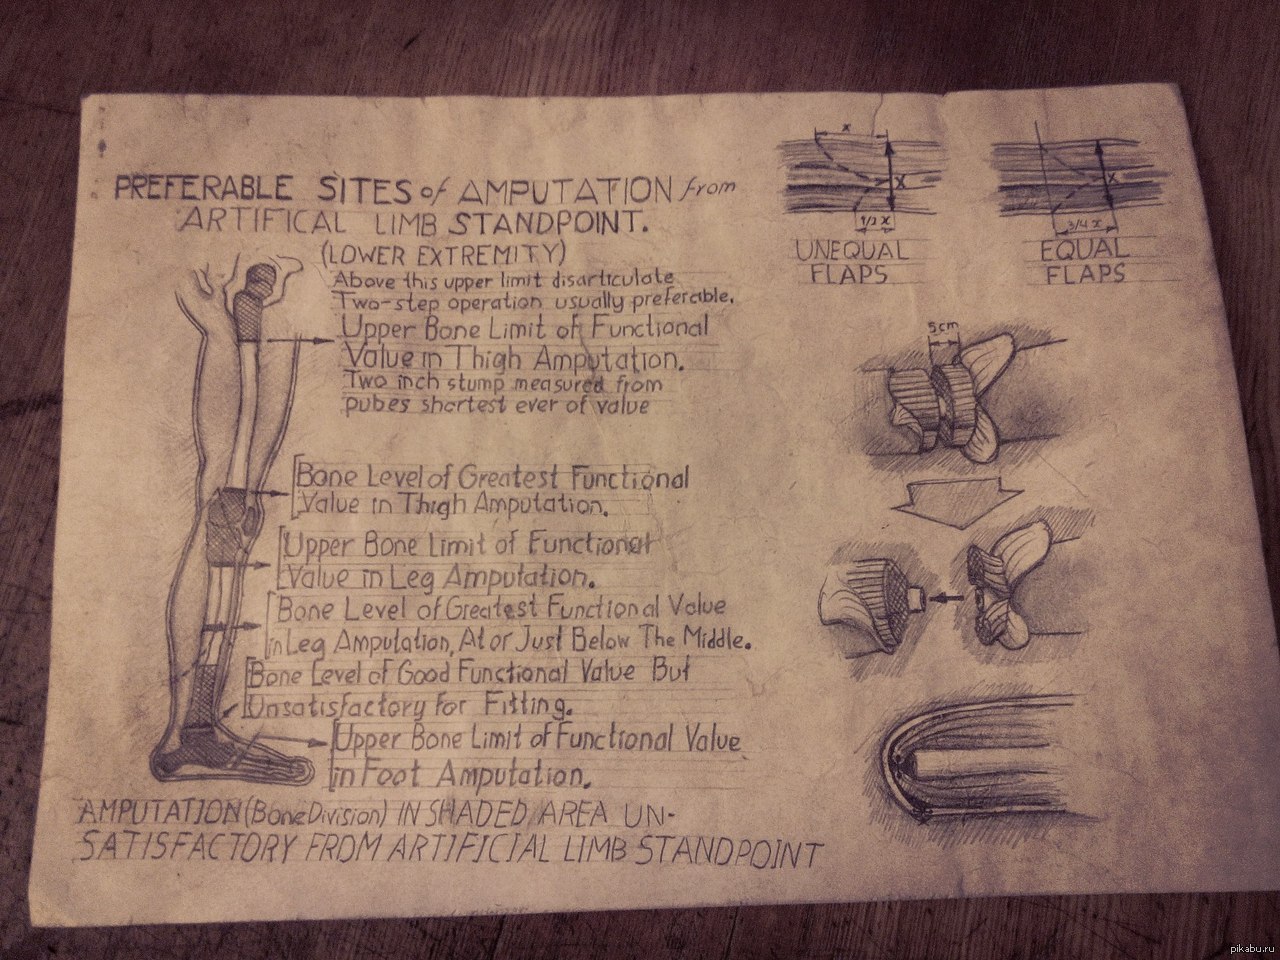 PREFERABLE SITES of AMPUTATION from
ARTIFICAL LIMB STANDPOINT.
(LOWER EXTREMITY)
Above this upper limit disarticulate
Two-step operation usually preferable.
Upper Bone Limit of Functional
Value in Thigh Amputation.
Two inch stump measured from
pubes shortest ever of value
Bone Level of Greatest Functional
Value in Thigh Amputation.
Upper Bone Limit of Functional
Value in Leg Amputation.
Bone Level of Greatest Functional Value
in Leg Amputation, At or Just Below The Middle.
Bone Level of Good Functional Value But
Unsatisfactory for Fitting.
Upper Bone Limit of Functional Value
in Foot Amputation.
AMPUTATION (Bone Division) IN SHADED AREA UN-
SATISFACTORY FROM ARTIFICIAL LIMB STANDPOINT
x
x
1/2 x
UNEQUAL
FLAPS
x
3/4 x
EQUAL
FLAPS
5cm
pikabu.ru